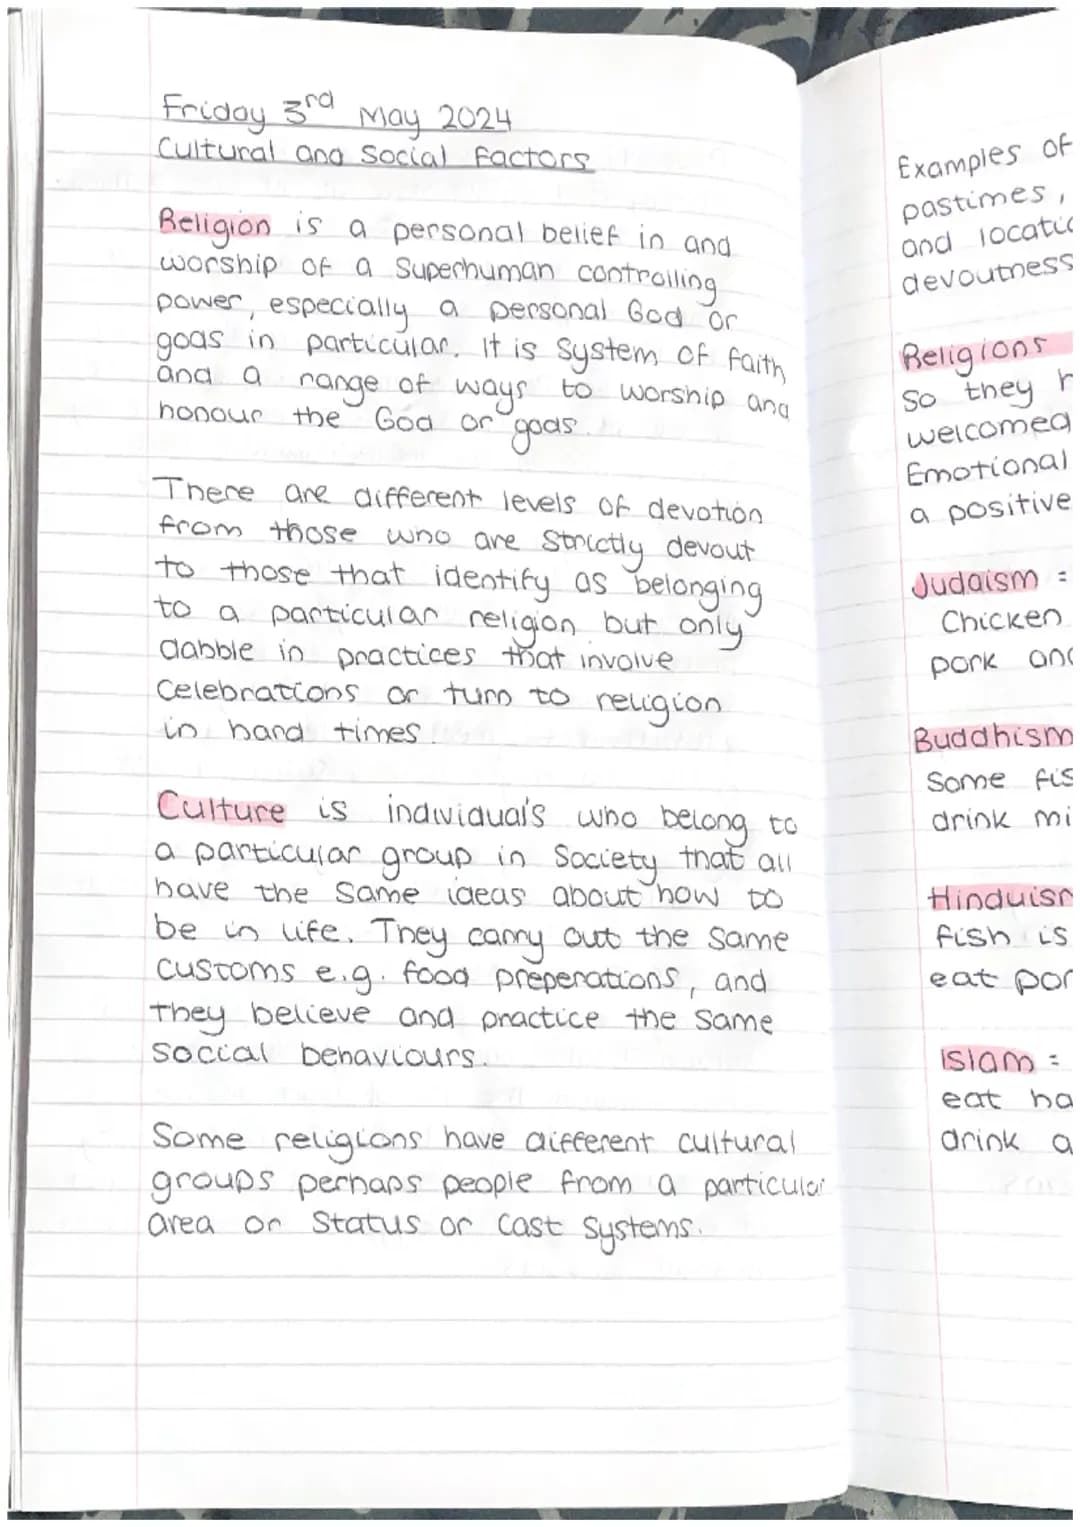 Friday 3rd May 2024
Cultural and Social Factors
Religion is a personal belief in and
worship of a Superhuman controlling
power, especially a personal God or
gods in particular. It is System of faith
and a range of ways to worship and
honour the God or gods.
There are different levels of devotion
from those who are Strictly devout
to those that identify as belonging
to a particular religion but only
dabble in practices that involve
Celebrations or turn to religion
in hard times.
Culture is individual's who belong to
a particular group in Society that all
have the Same ideas about how to
be in life. They carry out the Same
customs e.g. food preperations, and
they believe and practice the Same
social behaviours.
Some religions have different cultural
groups perhaps people from a particular
area or Status or Cast Systems.
Examples of
pastimes,
and locatio
devoutness
Religions
So they h
welcomed
Emotional
a positive
Judaism =
Chicken
pork and
Buddhism
Some fis
drink mi
Hinduism
fish is
eat por
Islam =
eat ha
drink a